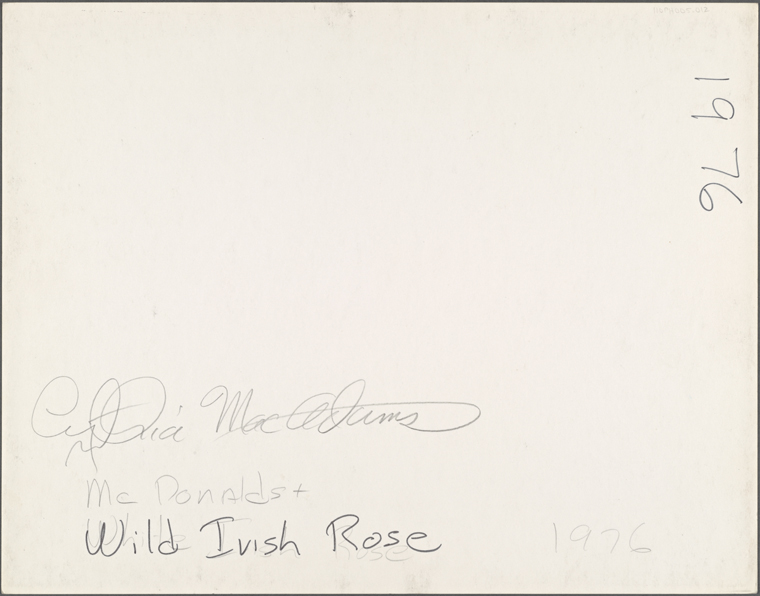 1976
Cynthia MacAdams
Mc Donalds +
Wild Irish Rose
1976